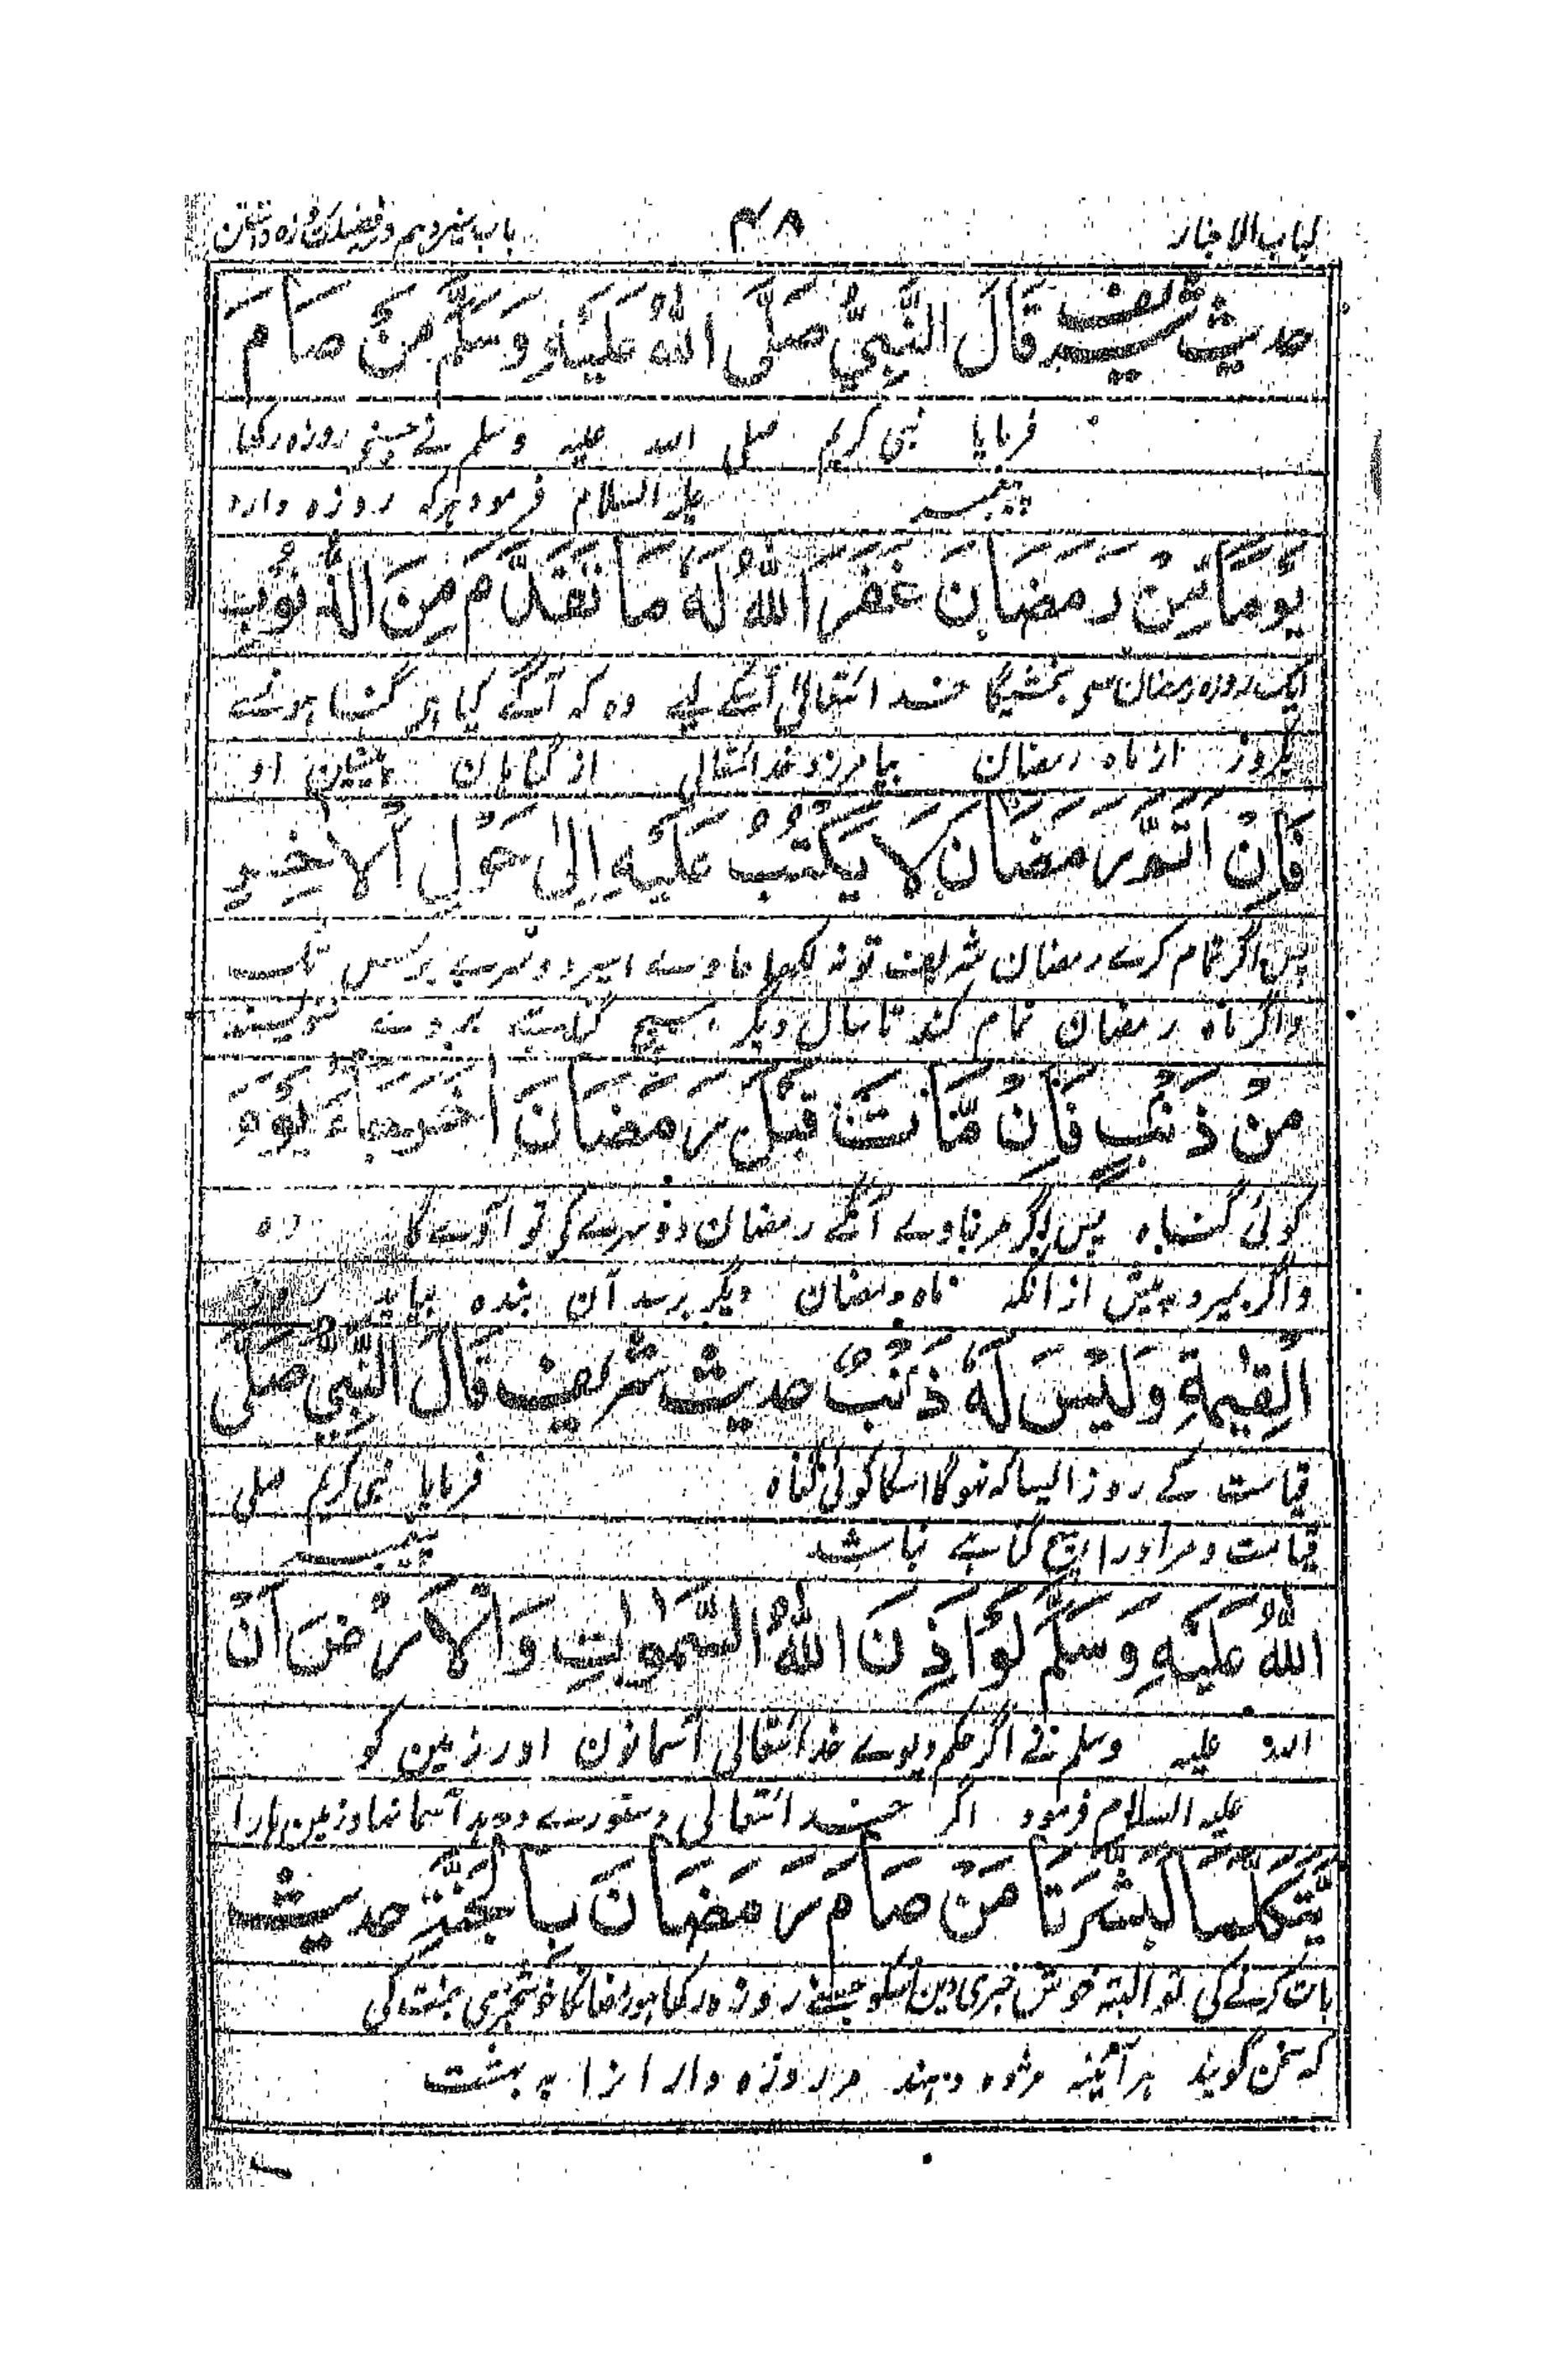 لباب الاخبار ۴۸ باب سیزدهم در فضیلت روزه داشتن
حدیث شریف قَالَ النَّبِيُّ صَلَّى اللهُ عَلَيْهِ وَسَلَّمَ مَنْ صَامَ
فرمایا نبی کریم صلی الله علیه وسلم نے جسنے روزہ رکھا
پیغمبر علیه السلام فرمود هرکه روزه دارد
يَوْمًا مِّنْ رَمَضَانَ غَفَرَ اللهُ لَهُ مَا تَقَدَّمَ مِنَ الذُّنُوْبِ
ایک روزہ رمضان سو بخشیگا خدائتعالیٰ اسکے لیے وہ کہ آگے کیا ہو گناہونسے
یکروز از ماه رمضان بیامرزد خدائتعالی از گناهان پیشین او
فَاِنْ اَتَمَّ رَمَضَانَ لَا يَكْتُبُ عَلَيْهِ اِلٰى حَوْلِ الْاٰخِرِ
پس اگر تمام کرے رمضان شریف تو نہ لکھا جاوے اسپر دوسرے برس تک
واگر ماه رمضان تمام کند تا سال دیگر هیچ گناهے بر وے ننویسند
مِنْ ذَنْبٍ فَاِنْ مَّاتَ قَبْلَ رَمَضَانَ اٰخَرَ جَاءَ يَوْمَ
کوئی گناہ پس اگر مرجاوے آگے رمضان دوسرے کی تو آوے گا وہ
واگر بمیرد پیش ازانکه ماه رمضان دیگر برسد آن بنده بیاید روز
الْقِيٰمَةِ وَلَيْسَ لَهُ ذَنْبٌ حدیث شریف قَالَ النَّبِيُّ صَلَّى
قیامت کے روز ایسا کہ نہوگا اسکا کوئی گناہ فرمایا نبی کریم صلی
قیامت ومر اورا هیچ گناهے نباشد پیغمبر
اللهُ عَلَيْهِ وَسَلَّمَ لَوْ اَذِنَ اللهُ السَّمٰوَاتِ وَالْاَرْضَ اَنْ
الله علیه وسلم نے اگر حکم دیوے خدائتعالی آسمانون اور زمین کو
علیه السلام فرمود اگر خدائتعالی دستورے دهد آسمانها وزمین هارا
يَّتَكَلَّمَا لَبَشَّرَتَا مَنْ صَامَ رَمَضَانَ بِالْجَنَّةِ حدیث
بات کرنے کی تو البتہ خوش خبری دین اسکو جسنے روزہ رکھا ہو رمضانکا خوشخبری جنت کی
که سخن گویند هرآئینه مژده دهند مر روزه دارانرا به بهشت